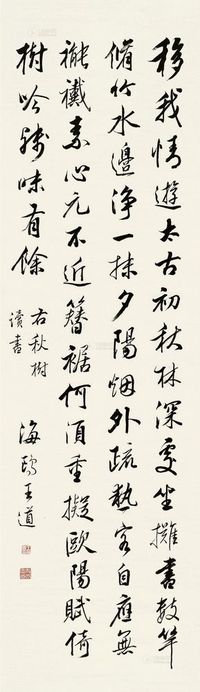 移我情遊太古初秋林深處坐擁書數竿
脩竹水邊淨一抹夕陽烟外疏熱客自應無
褦襶素心元不近簪裾何須重擬歐陽賦倚
樹吟聲味有餘
右秋樹
讀書
海鷗王道